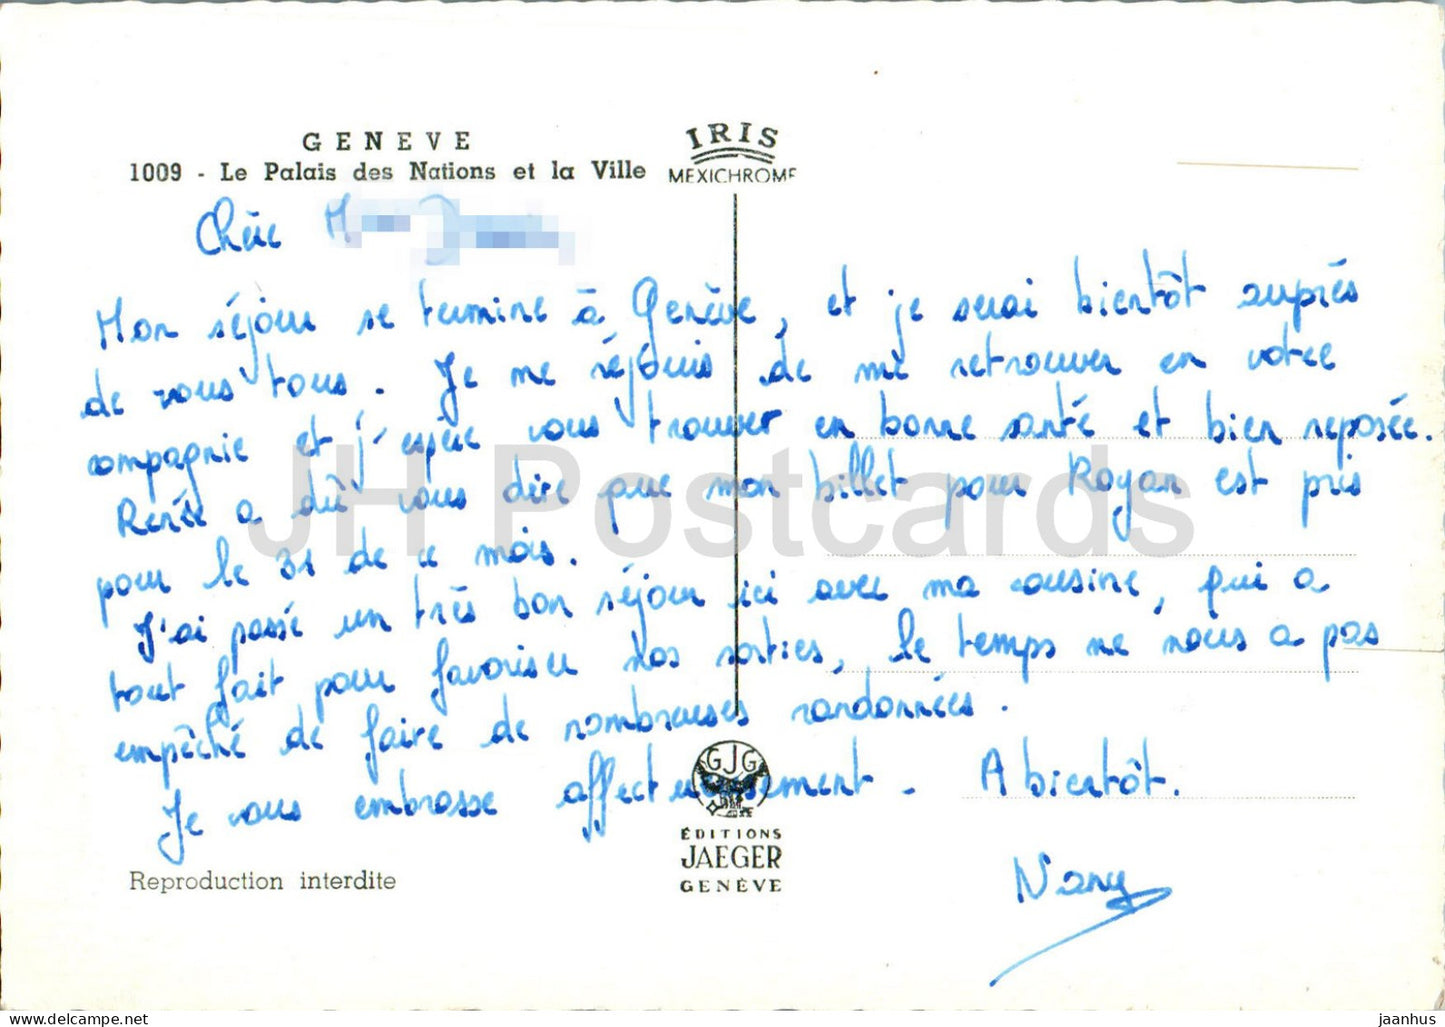 GENEVE
1009 - Le Palais des Nations et la Ville
IRIS
MEXICHROME
Chère
Mon séjour se termine à Genève, et je serai bientôt auprès
de vous tous. Je me réjouis de me retrouver en votre
compagnie et j'espère vous trouver en bonne santé et bien reposée.
Renée a dû vous dire que mon billet pour Royan est pris
pour le 31 de ce mois.
J'ai passé un très bon séjour ici avec ma cousine, qui a
tout fait pour favoriser nos sorties, le temps ne nous a pas
empêché de faire de nombreuses randonnées.
Je vous embrasse affectueusement. A bientôt.
Nany
GJG
ÉDITIONS
JAEGER
GENÈVE
Reproduction interdite
JH Postcards
jaanhus